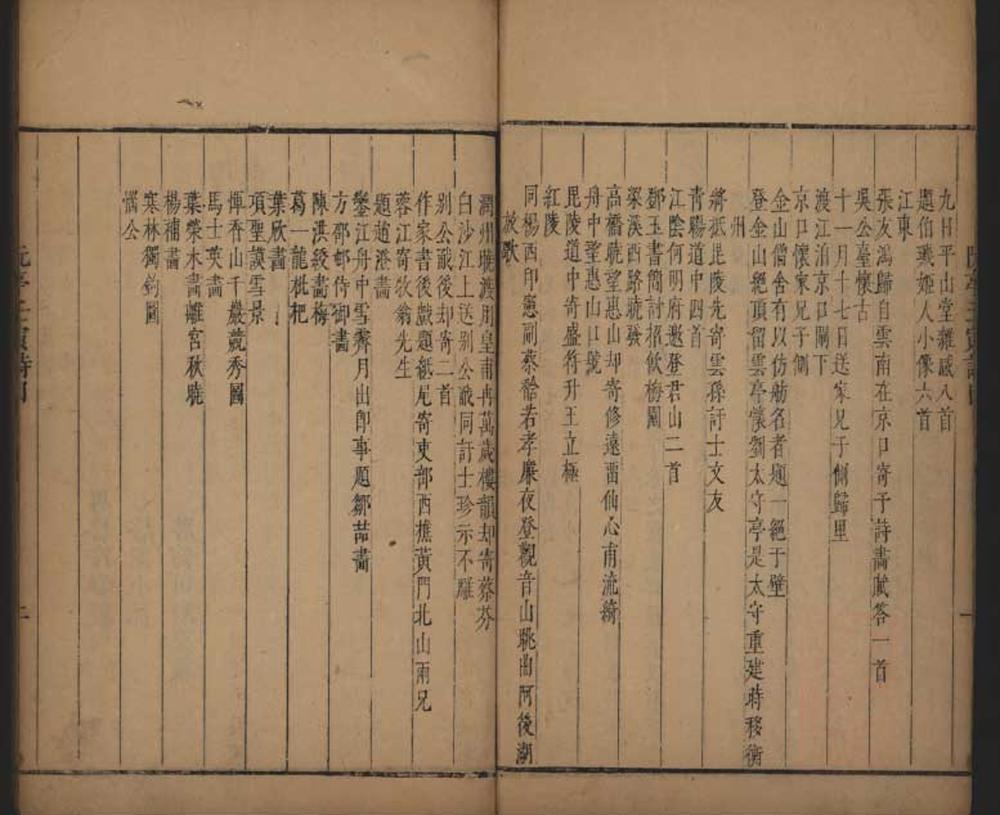 九日平山堂雜感八首
題伯璣姬人小像六首
江東
張友鴻歸自雲南在京口寄予詩畵賦答一首
吳公臺懷古
十一月十七日送家兄子側歸里
渡江泊京口閘下
京口懷家兄子側
金山僧舍有以仿舫名者題一絕于壁
登金山絕頂留雲亭懷劉太守亭是太守重建時移衡
州
將抵毘陵先寄雲孫訏士文友
青暘道中四首
江陰何明府邀登君山二首
鄧玉書簡討招飲梅園
梁溪西路曉發
高橋曉望惠山却寄修遠畱仙心甫流綺
舟中望惠山口號
毘陵道中寄盛符升王立極
紅陵
同楊西印憲副蔡 若孝廉夜登觀音山眺曲阿後湖
放歌
潤州曉渡用皇甫冉萬歲樓韻却寄蔡芬
白沙江上送別公 同訏士珍示不雕
別公 後却寄二首
作家書後戲題紙尾寄吏部西樵黃門北山兩兄
蓉江寄牧翁先生
題趙澄畵
鑾江舟中雪霽月出卽事題鄒喆畵
方邵邨侍御畵
陳洪綬畵梅
葛一龍枇杷
葉欣畵
項聖謨雪景
惲香山千巖競秀圖
馬士英畵
葉榮木畵離宮秋曉
楊補畵
寒林獨釣圖
憺公
二